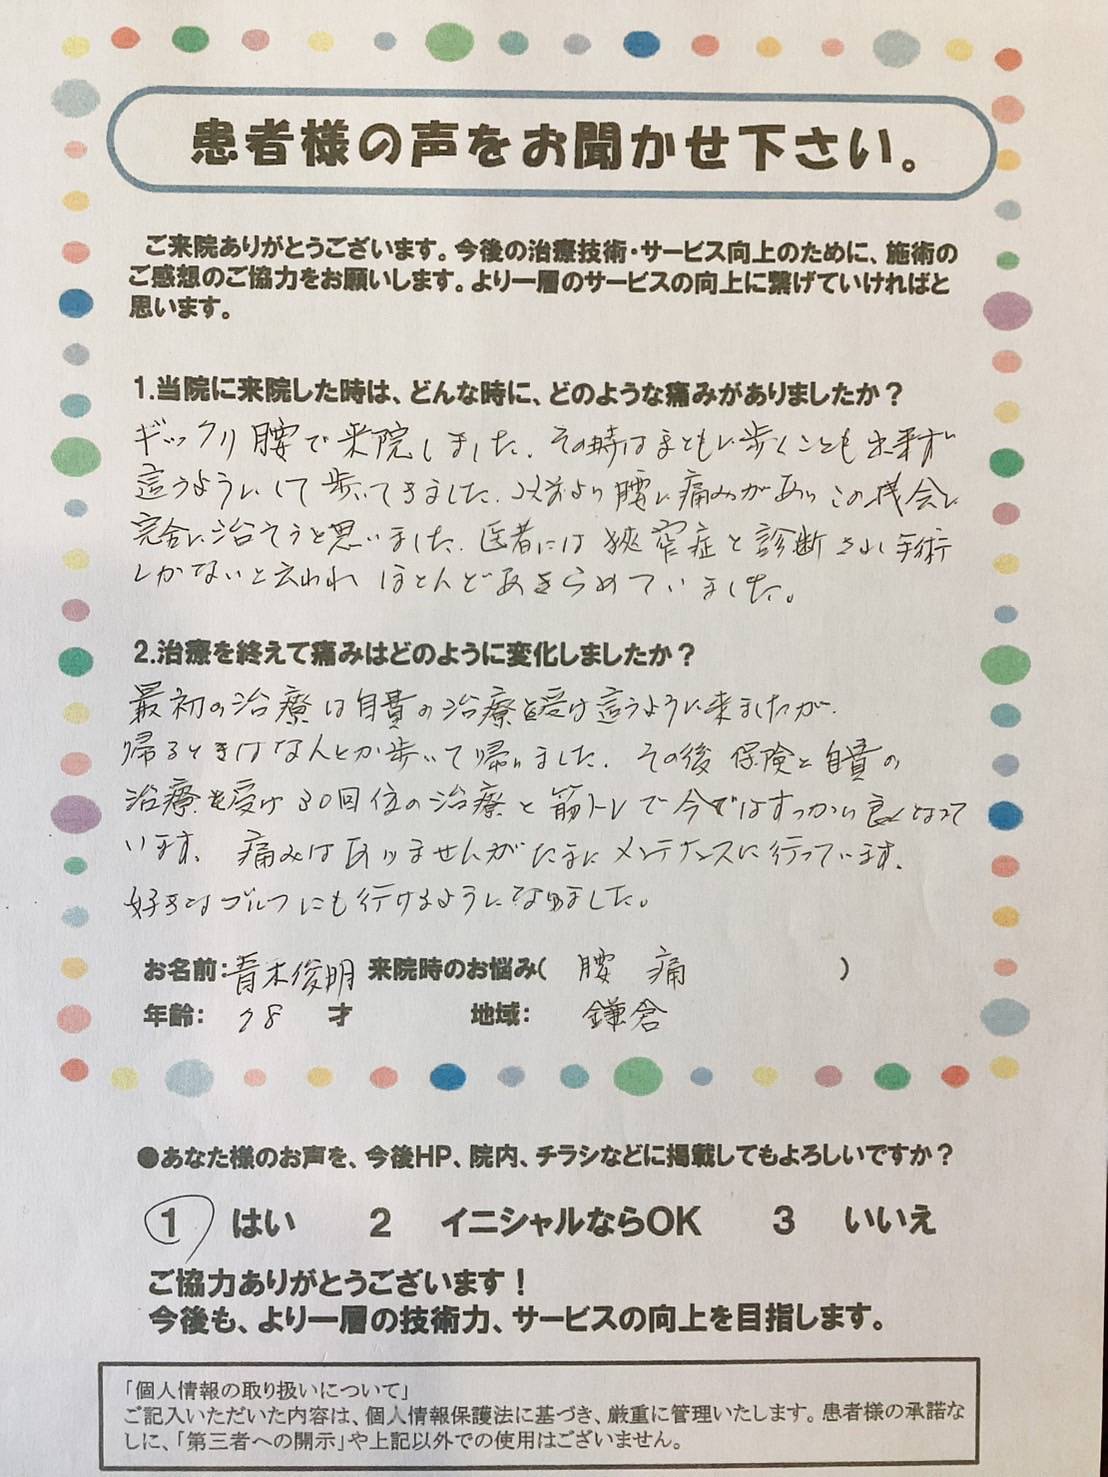 患者様の声をお聞かせ下さい。
ご来院ありがとうございます。今後の治療技術・サービス向上のために、施術の
ご感想のご協力をお願いします。より一層のサービスの向上に繋げていければと
思います。
1.当院に来院した時は、どんな時に、どのような痛みがありましたか？
ギックリ腰で来院しました。その時はまともに歩くことも出来ず
這うようにして歩いてきました。以前より腰に痛みがありこの機会に
完全に治そうと思いました。医者には狭窄症と診断され手術
しかないと云われほとんどあきらめていました。
2.治療を終えて痛みはどのように変化しましたか？
最初の治療は自費の治療を受け這うように来ましたが、
帰るときはなんとか歩いて帰りました。その後保険と自費の
治療を受け30回位の治療と筋トレで今ではすっかり良くなって
います。痛みはありませんがたまにメンテナンスに行っています。
好きなゴルフにも行けるようになりました。
お名前:青木俊明 来院時のお悩み( 腰痛 )
年齢: 78 才 地域: 鎌倉
●あなた様のお声を、今後HP、院内、チラシなどに掲載してもよろしいですか？
1 はい 2 イニシャルならOK 3 いいえ
ご協力ありがとうございます！
今後も、より一層の技術力、サービスの向上を目指します。
「個人情報の取り扱いについて」
ご記入いただいた内容は、個人情報保護法に基づき、厳重に管理いたします。患者様の承諾な
しに、「第三者への開示」や上記以外での使用はございません。